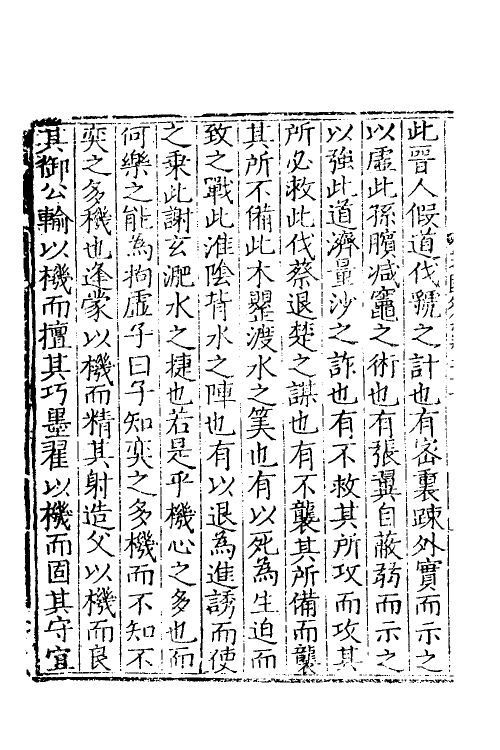 此晉人假道伐虢之計也有密裏踈外實而示之
以虛此孫臏減竈之術也有張翼自蔽弱而示之
以強此道濟量沙之詐也有不救其所攻而攻其
所必救此伐蔡退楚之謀也有不襲其所備而襲
其所不備此木罌渡水之筭也有以死為生迫而
致之戰此淮陰背水之陣也有以退為進誘而使
之乗此謝玄淝水之捷也若是乎機心之多也而
何樂之能為拘虛子曰子知奕之多機而不知不
奕之多機也逢蒙以機而精其射造父以機而良
其御公輸以機而擅其巧墨翟以機而固其守宜